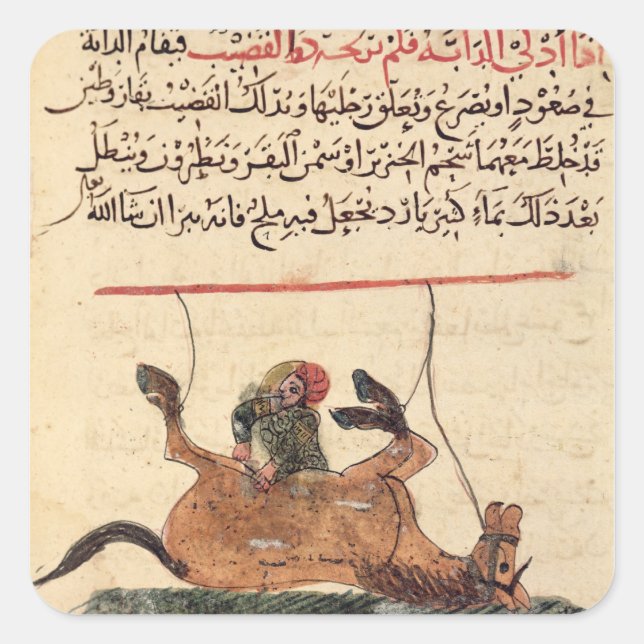 اذا ادلى الدابة فلم تركحه دوا القضيب فيقام الدابة
في صعود او يصرع وتعلق رجليها ويدلك القضيب بقار وطين
قد خلط معهما شحم الخنزير او سمن البقر ونطرون ويبطل
بعد ذلك بماء كثير بارد يجعل فيه ملح فانه يبرا ان شا الله تعلى